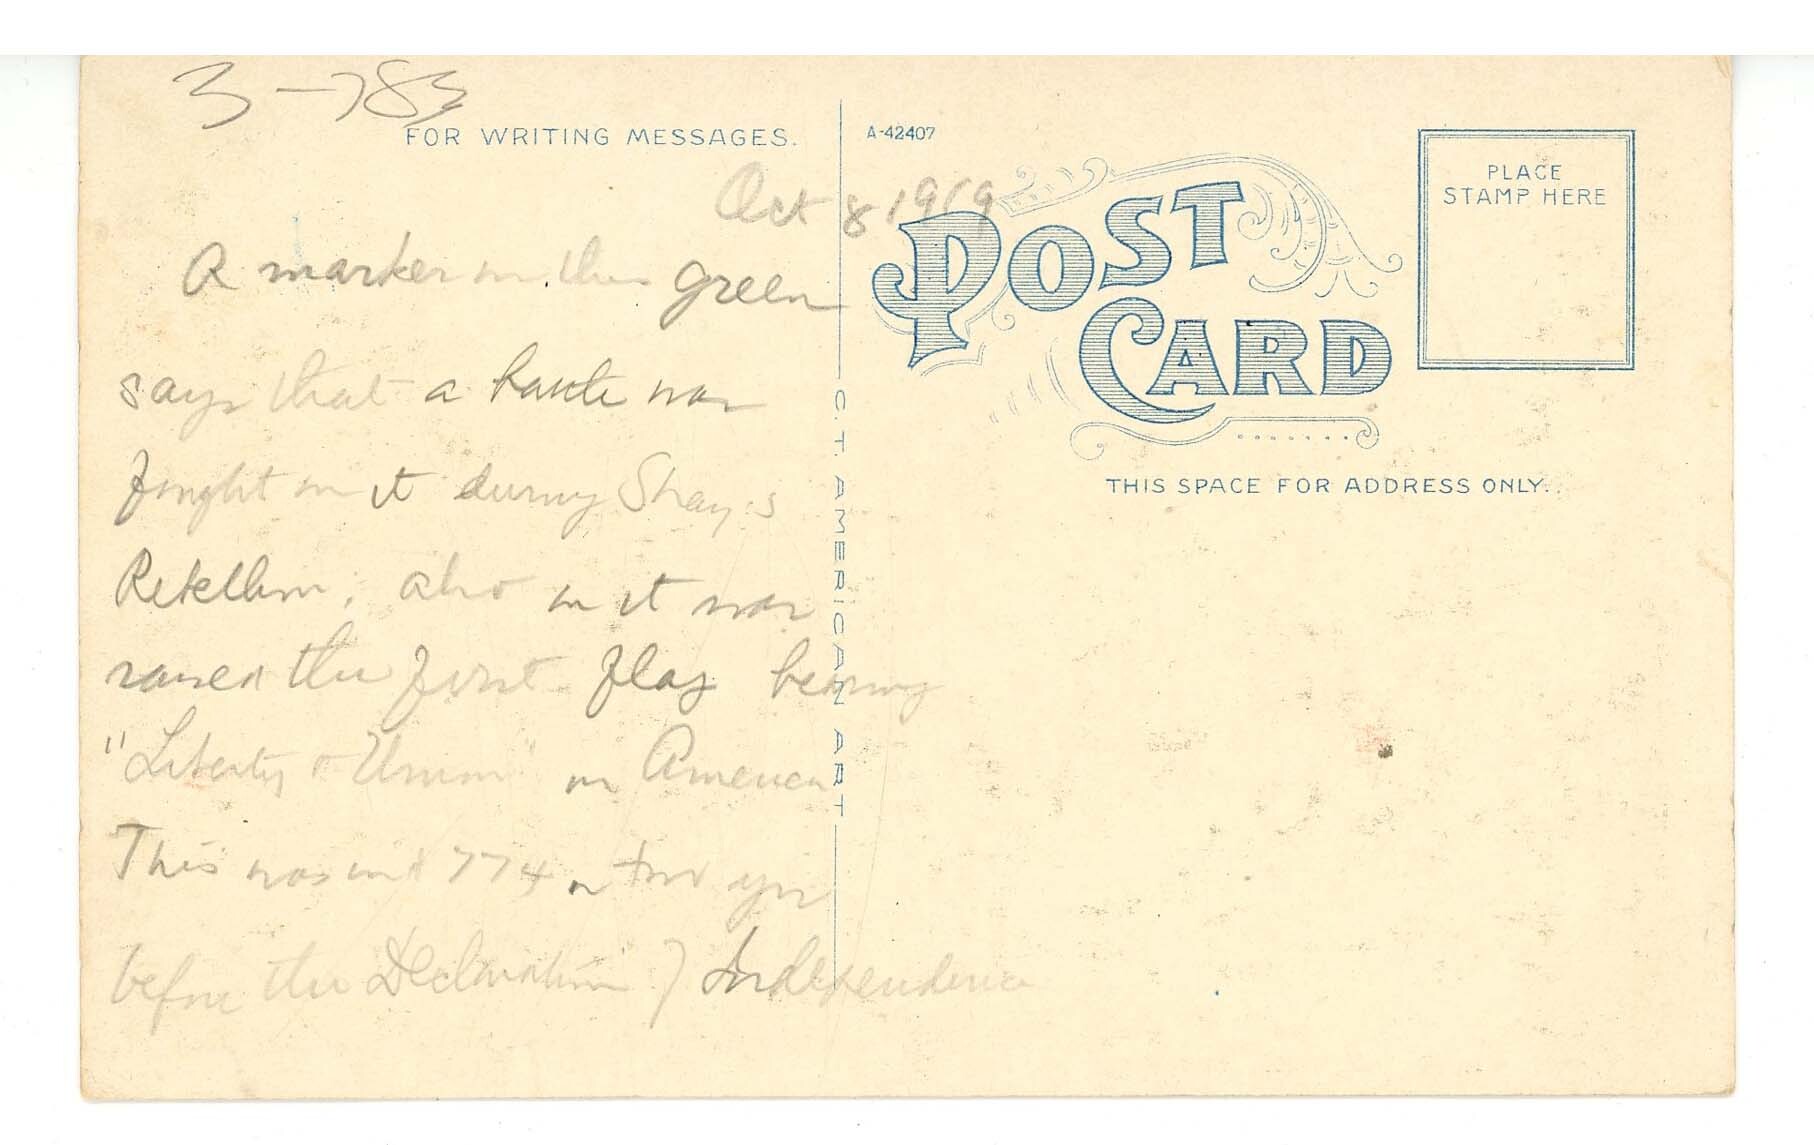 3-783
FOR WRITING MESSAGES.
A-42407
PLACE
STAMP HERE
POST
CARD
THIS SPACE FOR ADDRESS ONLY.
C.T. AMERICAN ART
Oct 8 1919
A marker on this green
says that a battle was
fought on it during Shay's
Rebellion; also on it was
raised the first flag bearing
"Liberty & Union" in America
This was in 1774 or two yrs
before the Declaration of Independence